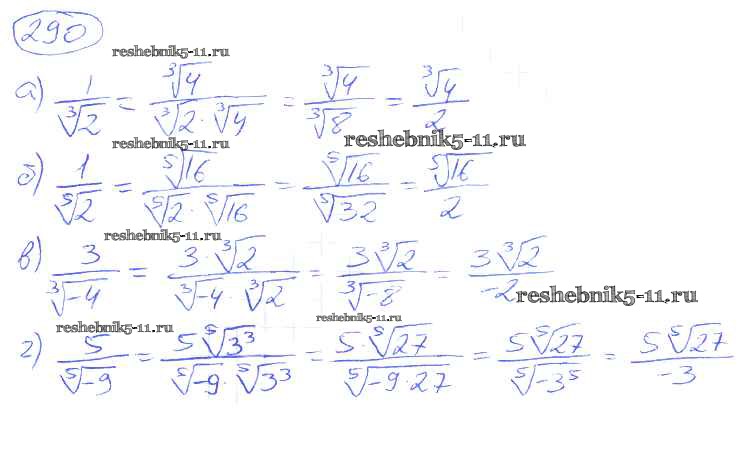 290
reshebnik5-11.ru
а) 1/∛2 = ∛4/(∛2·∛4) = ∛4/∛8 = ∛4/2
reshebnik5-11.ru reshebnik5-11.ru
б) 1/⁵√2 = ⁵√16/(⁵√2·⁵√16) = ⁵√16/⁵√32 = ⁵√16/2
reshebnik5-11.ru
в) 3/∛-4 = 3·∛2/(∛-4·∛2) = 3∛2/∛-8 = 3∛2/-2
reshebnik5-11.ru
reshebnik5-11.ru reshebnik5-11.ru
г) 5/⁵√-9 = 5⁵√3³/(⁵√-9·⁵√3³) = 5·⁵√27/⁵√-9·27 = 5⁵√27/⁵√-3⁵ = 5⁵√27/-3